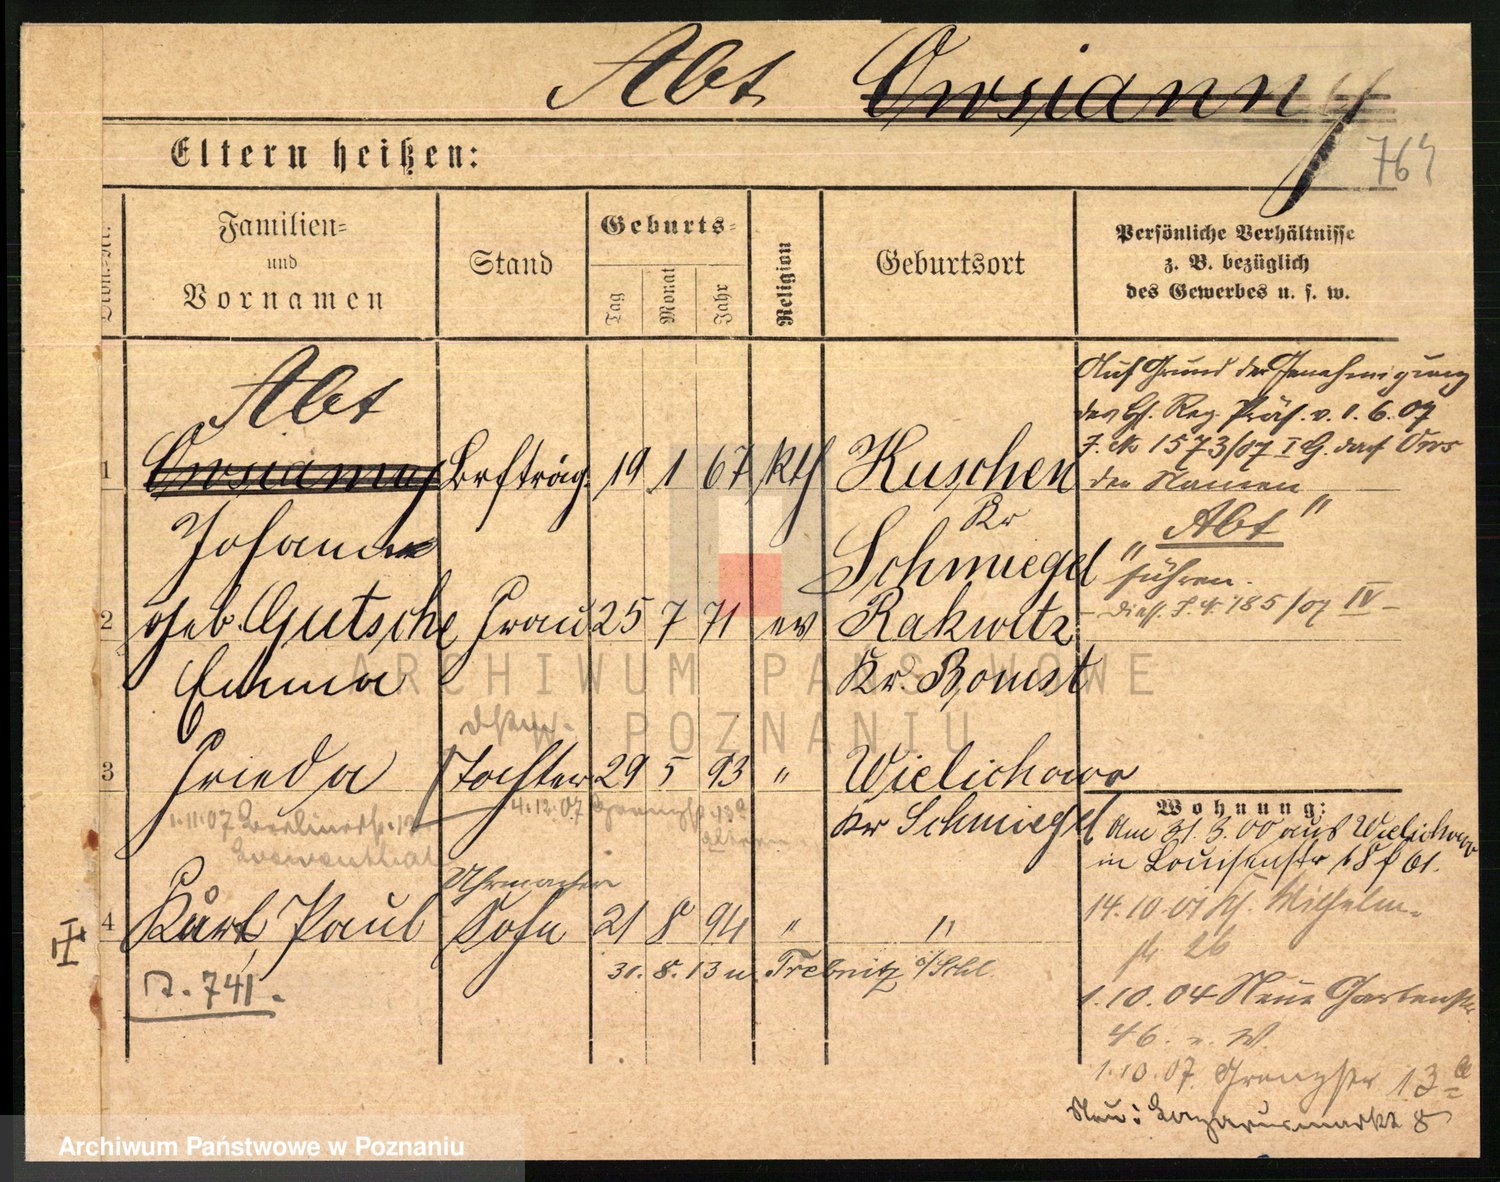 Abt Owsianny
764
Eltern heißen:
Familien= und Vornamen
Stand
Geburts=
Tag Monat Jahr
Religion
Geburtsort
Persönliche Verhältnisse
z. B. bezüglich
des Gewerbes u. s. w.
Abt
1 Owsianny Brfträg. 19 1 67 kth Kuschen
Johann Kr
Schmiegel
2 geb. Gutsche Frau 25 7 71 ev Rakwitz
Emma Kr. Bomst
3 Frieda Tochter 29 5 93 " Wielichowo
1.11.07 Berlinerstr. 4.12.07 Grenzstr 13a Kr Schmiegel
Eltern
Uhrmacher
4 Kurt, Paul Sohn 21 8 94 " "
31. 8. 13 n. Trebnitz i/Schl.
D. 741.
Auf Grund der Genehmigung
des H. Reg. Präs. v. 1. 6. 07
1573/07 I G. darf Ows
den Namen
" Abt "
führen.
185/07 IV
Wohnung:
Am 31. 3. 00 aus Wielichowo
in Louisenstr 18
14. 10. 01 Wilhelm-
str 26
1. 10. 04 Neue Gartenstr
46.
1. 10. 07. Grenzstr 13a
Neu: Lazarusmarkt 8
ARCHIWUM PAŃSTWOWE
W POZNANIU
Archiwum Państwowe w Poznaniu